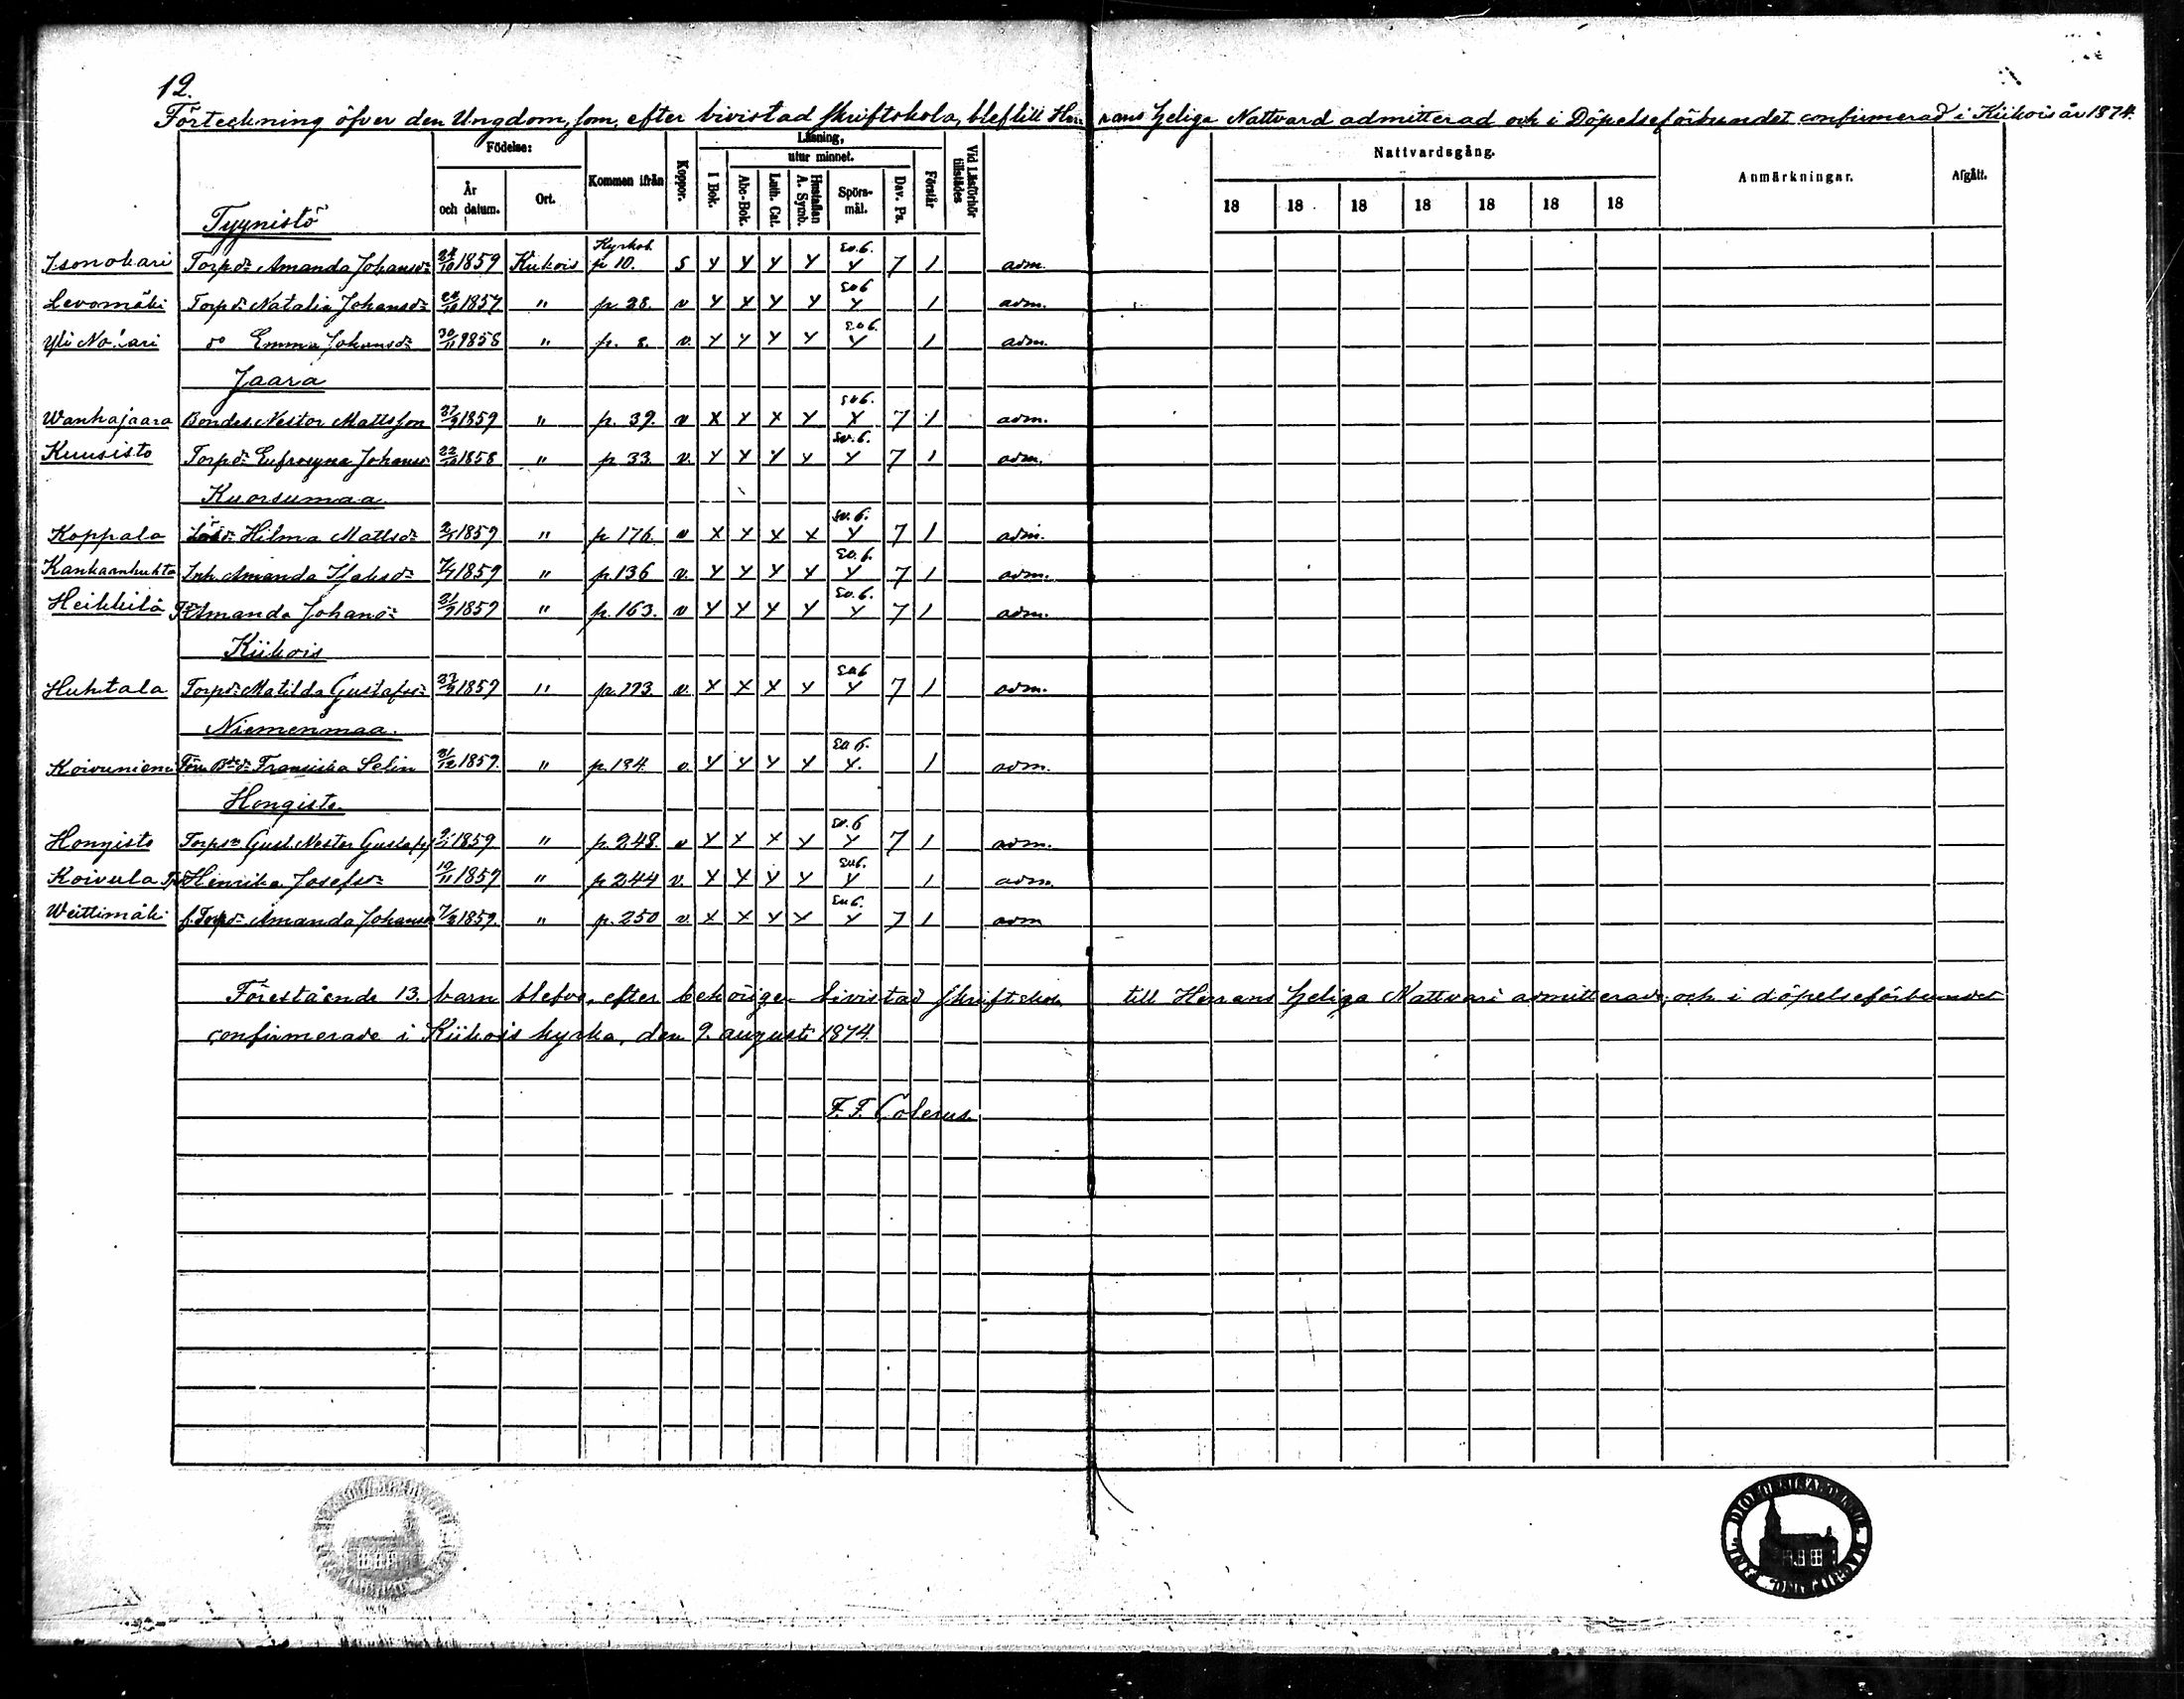 12.
Förteckning öfver den Ungdom, som, efter bivistad skriftskola, blef till Herrans heliga Nattvard admitterad och i Döpelseförbundet confirmerad i Kiikois år 1874.
Födelse: Kommen ifrån Koppor. Läsning, Vid Läsförhör tillstädes Nattvardsgång. Anmärkningar. Afgått.
utur minnet.
År och datum. Ort. I Bok. Abc-Bok. Luth. Cat. Hustaflan A. Symb. Spörsmål. Dav. Ps. Förstår 18 18 18 18 18 18 18
Tyynistö
Isonokari Torpdr Amanda Johansdr 24/10 1859 Kiikois Kyrkob. p 10. s Y Y Y Y Sv. 6. Y 7 1 adm.
Levomäki Torpdr Natalia Johansdr 1857 " p. 28. v Y Y Y Y Sv 6 Y 1 adm.
Yli No.ari do Emma Johansdr 30/11 1858 " p. 8. v. Y Y Y Y Sv 6. Y 1 adm.
Jaara
Wanhajaara Bondes. Nestor Mattsson 1859 " p. 39. v X Y X Y Sv 6. X 7 1 adm.
Kuusisto Torpdr Eufrosyna Johansdr 1858 " p 33. v. Y Y Y Y Sv. 6. Y 7 1 adm.
Kuorsumaa
Koppala Hilma Mattsdr 1859 " p 176. v X Y X X Sv. 6. Y 7 1 adm.
Kankaanhuhta Inh. Amanda Isaksdr 1859 " p. 136 v. Y Y Y Y Sv. 6. Y 7 1 adm.
Heikkilä Amanda Johansdr 1859 " p. 163. v Y Y Y Y Sv. 6. Y 7 1 adm.
Kiikois
Huhtala Torpdr Matilda Gustafsdr 1859 " p. 193. v. X X X Y Sv 6 Y 7 1 adm.
Niemenmaa.
Koivuniemi Fransiska Selin 31/12 1859. " p. 194. v. Y Y Y Y Sv 6. Y. 1 adm.
Hongisto.
Hongisto Torps. Gust. Nestor Gustafss 1859 " p. 248. v Y Y X Y Sv. 6 Y 7 1 adm.
Koivula Henrika Josefsdr 10/11 1859 " p 244 v. Y Y Y Y Sv 6. Y 1 adm.
Weittimäki f. Torpdr Amanda Johansdr 1859. " p. 250 v. X X Y Y Sv 6. Y 7 1 adm
Förestående 13. barn blefvo, efter behörigen bivistad skriftskola till Herrans heliga Nattvard admitterade, och i döpelseförbundet
confirmerade i Kiikois kyrka, den 9. augusti 1874.
F. F. Colerus.